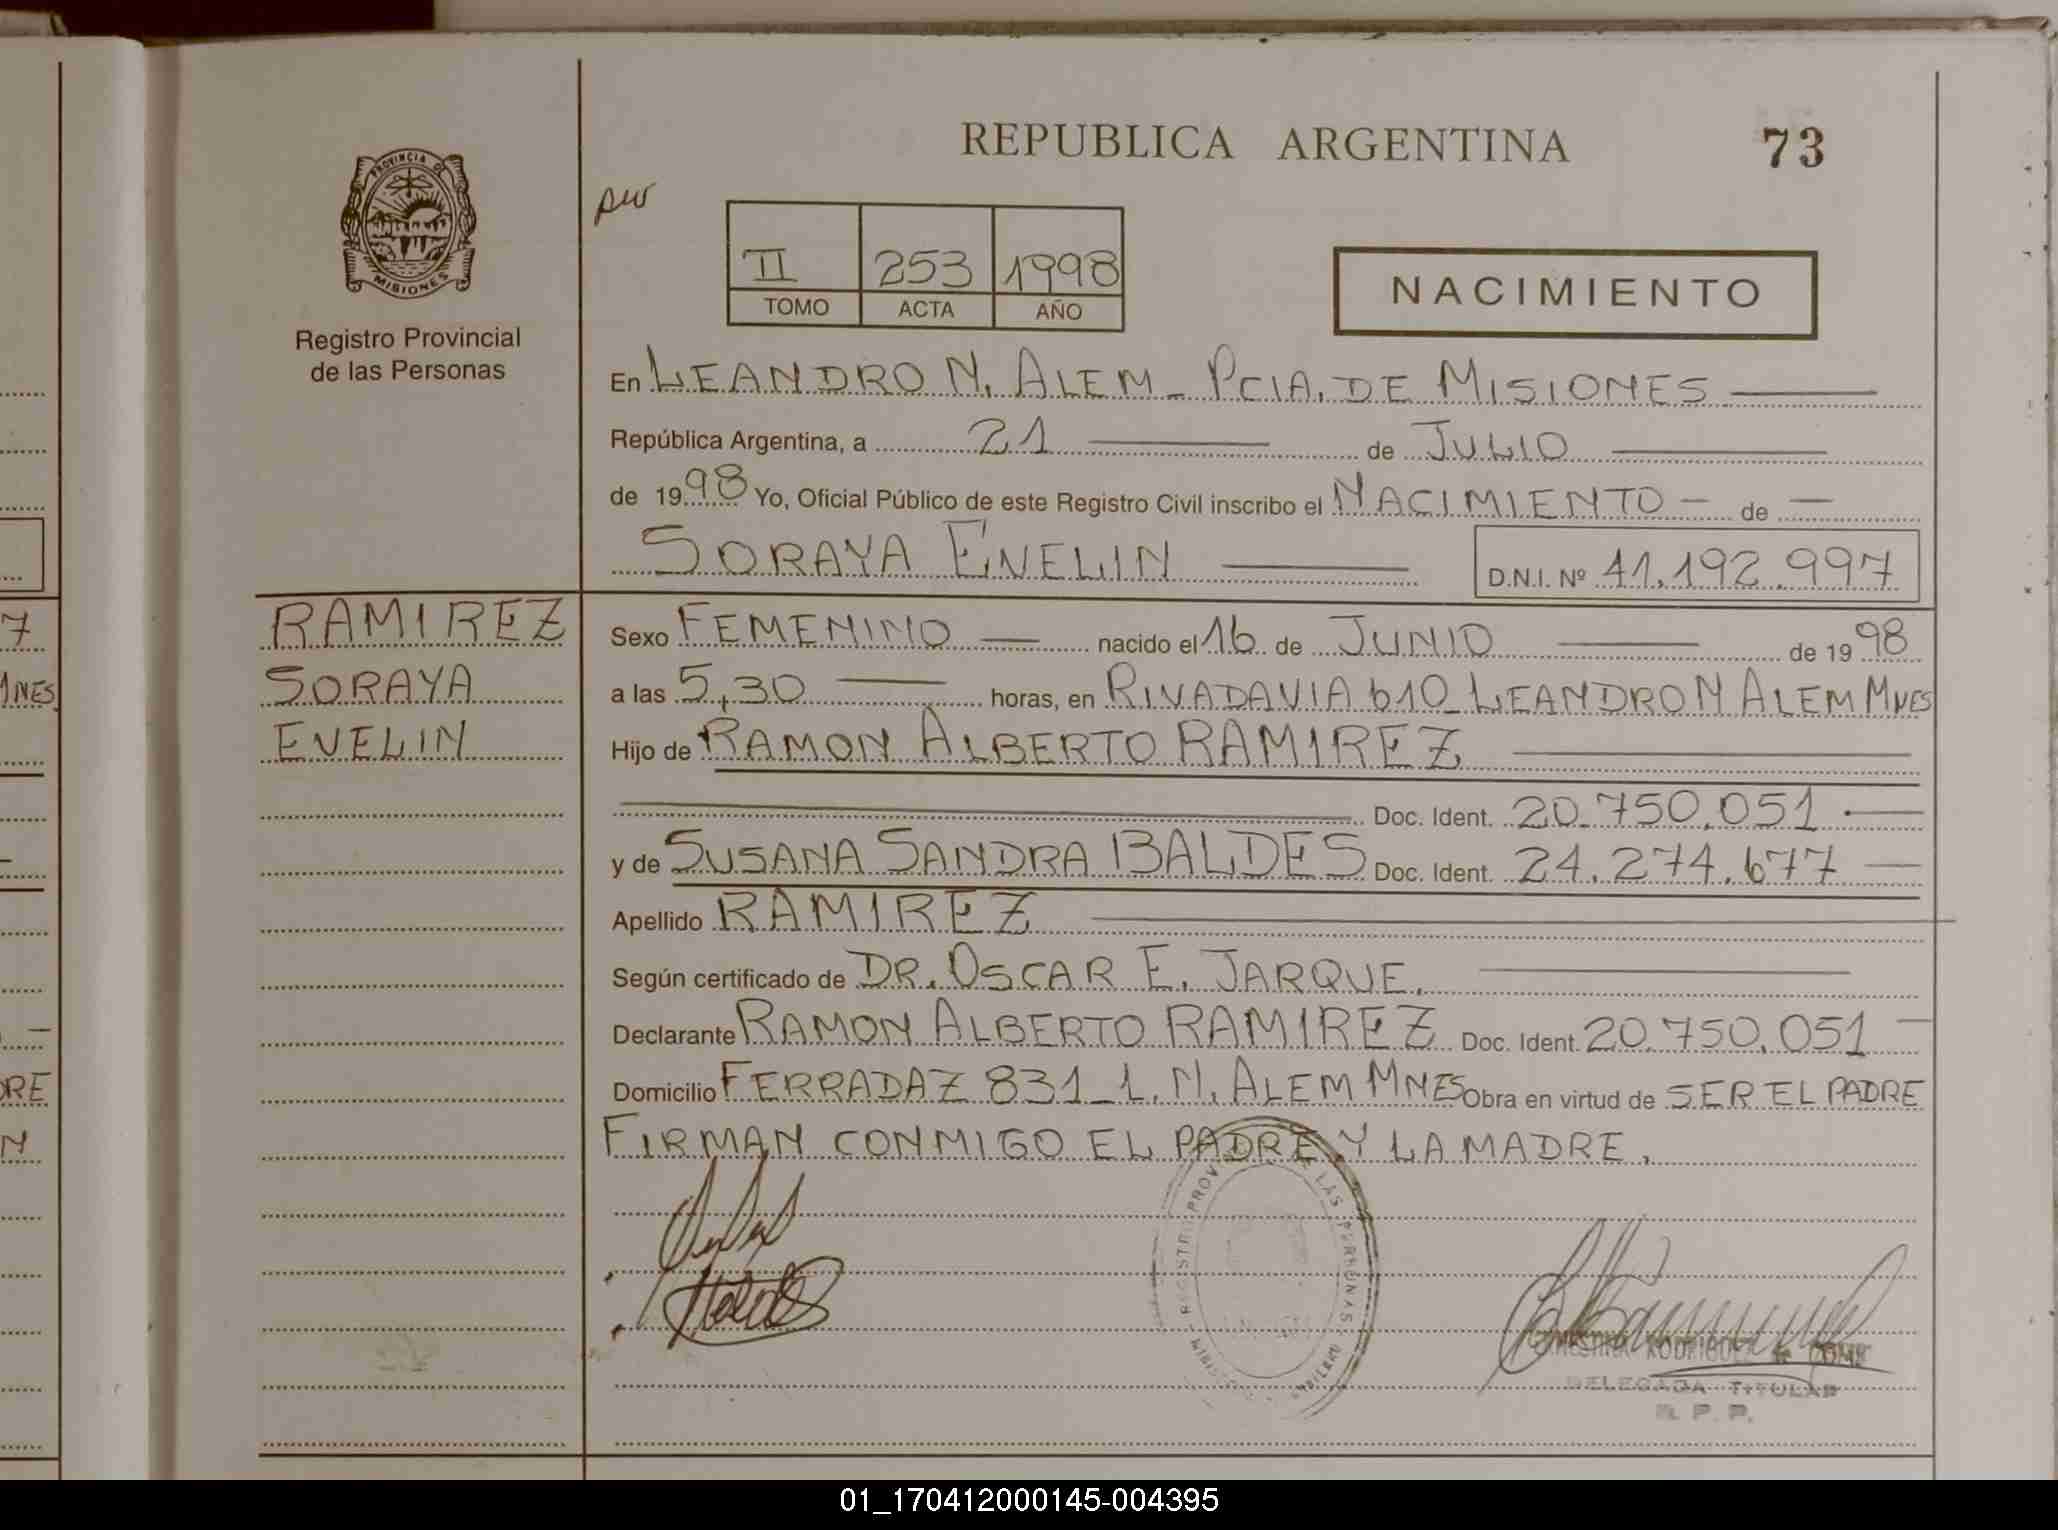 REPUBLICA ARGENTINA 73
PROVINCIA DE
MISIONES
Registro Provincial
de las Personas
II 253 1998
TOMO ACTA AÑO
NACIMIENTO
En LEANDRO N. ALEM - PCIA. DE MISIONES
República Argentina, a 21 de JULIO
de 1998 Yo, Oficial Público de este Registro Civil inscribo el NACIMIENTO - de -
SORAYA EVELIN D.N.I. Nº 41.192.997
RAMIREZ
SORAYA
EVELIN
Sexo FEMENINO nacido el 16 de JUNIO de 1998
a las 5,30 horas, en RIVADAVIA 610_LEANDRO N ALEM MNES
Hijo de RAMON ALBERTO RAMIREZ
Doc. Ident. 20.750.051
y de SUSANA SANDRA BALDES Doc. Ident. 24.274.677
Apellido RAMIREZ
Según certificado de DR. OSCAR E. JARQUE.
Declarante RAMON ALBERTO RAMIREZ Doc. Ident. 20.750.051
Domicilio FERRADAZ 831_L.N. ALEM MNES Obra en virtud de SER EL PADRE
FIRMAN CONMIGO EL PADRE Y LA MADRE.
DELEGADA TITULAR
R. P. P.
01_170412000145-004395